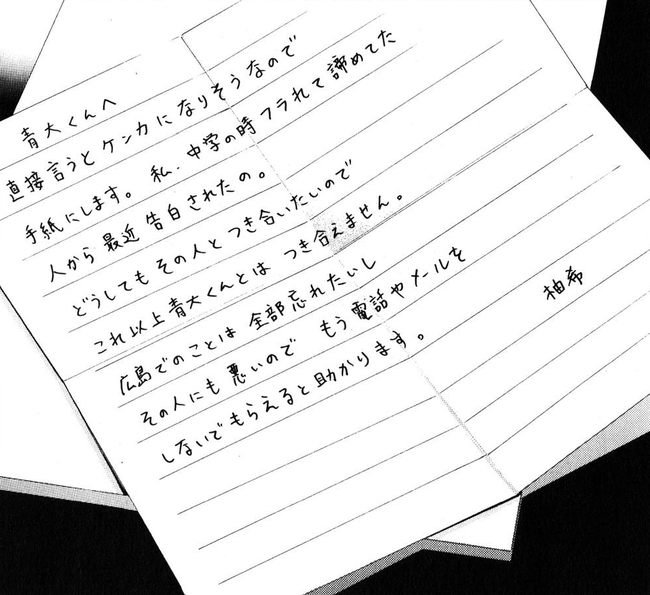 青大くんへ
直接言うとケンカになりそうなので
手紙にします。私、中学の時フラれて諦めてた
人から最近告白されたの。
どうしてもその人とつき合いたいので
これ以上青大くんとは つき合えません。
広島でのことは全部忘れたいし
その人にも悪いので もう電話やメールを
しないでもらえると助かります。
柚希